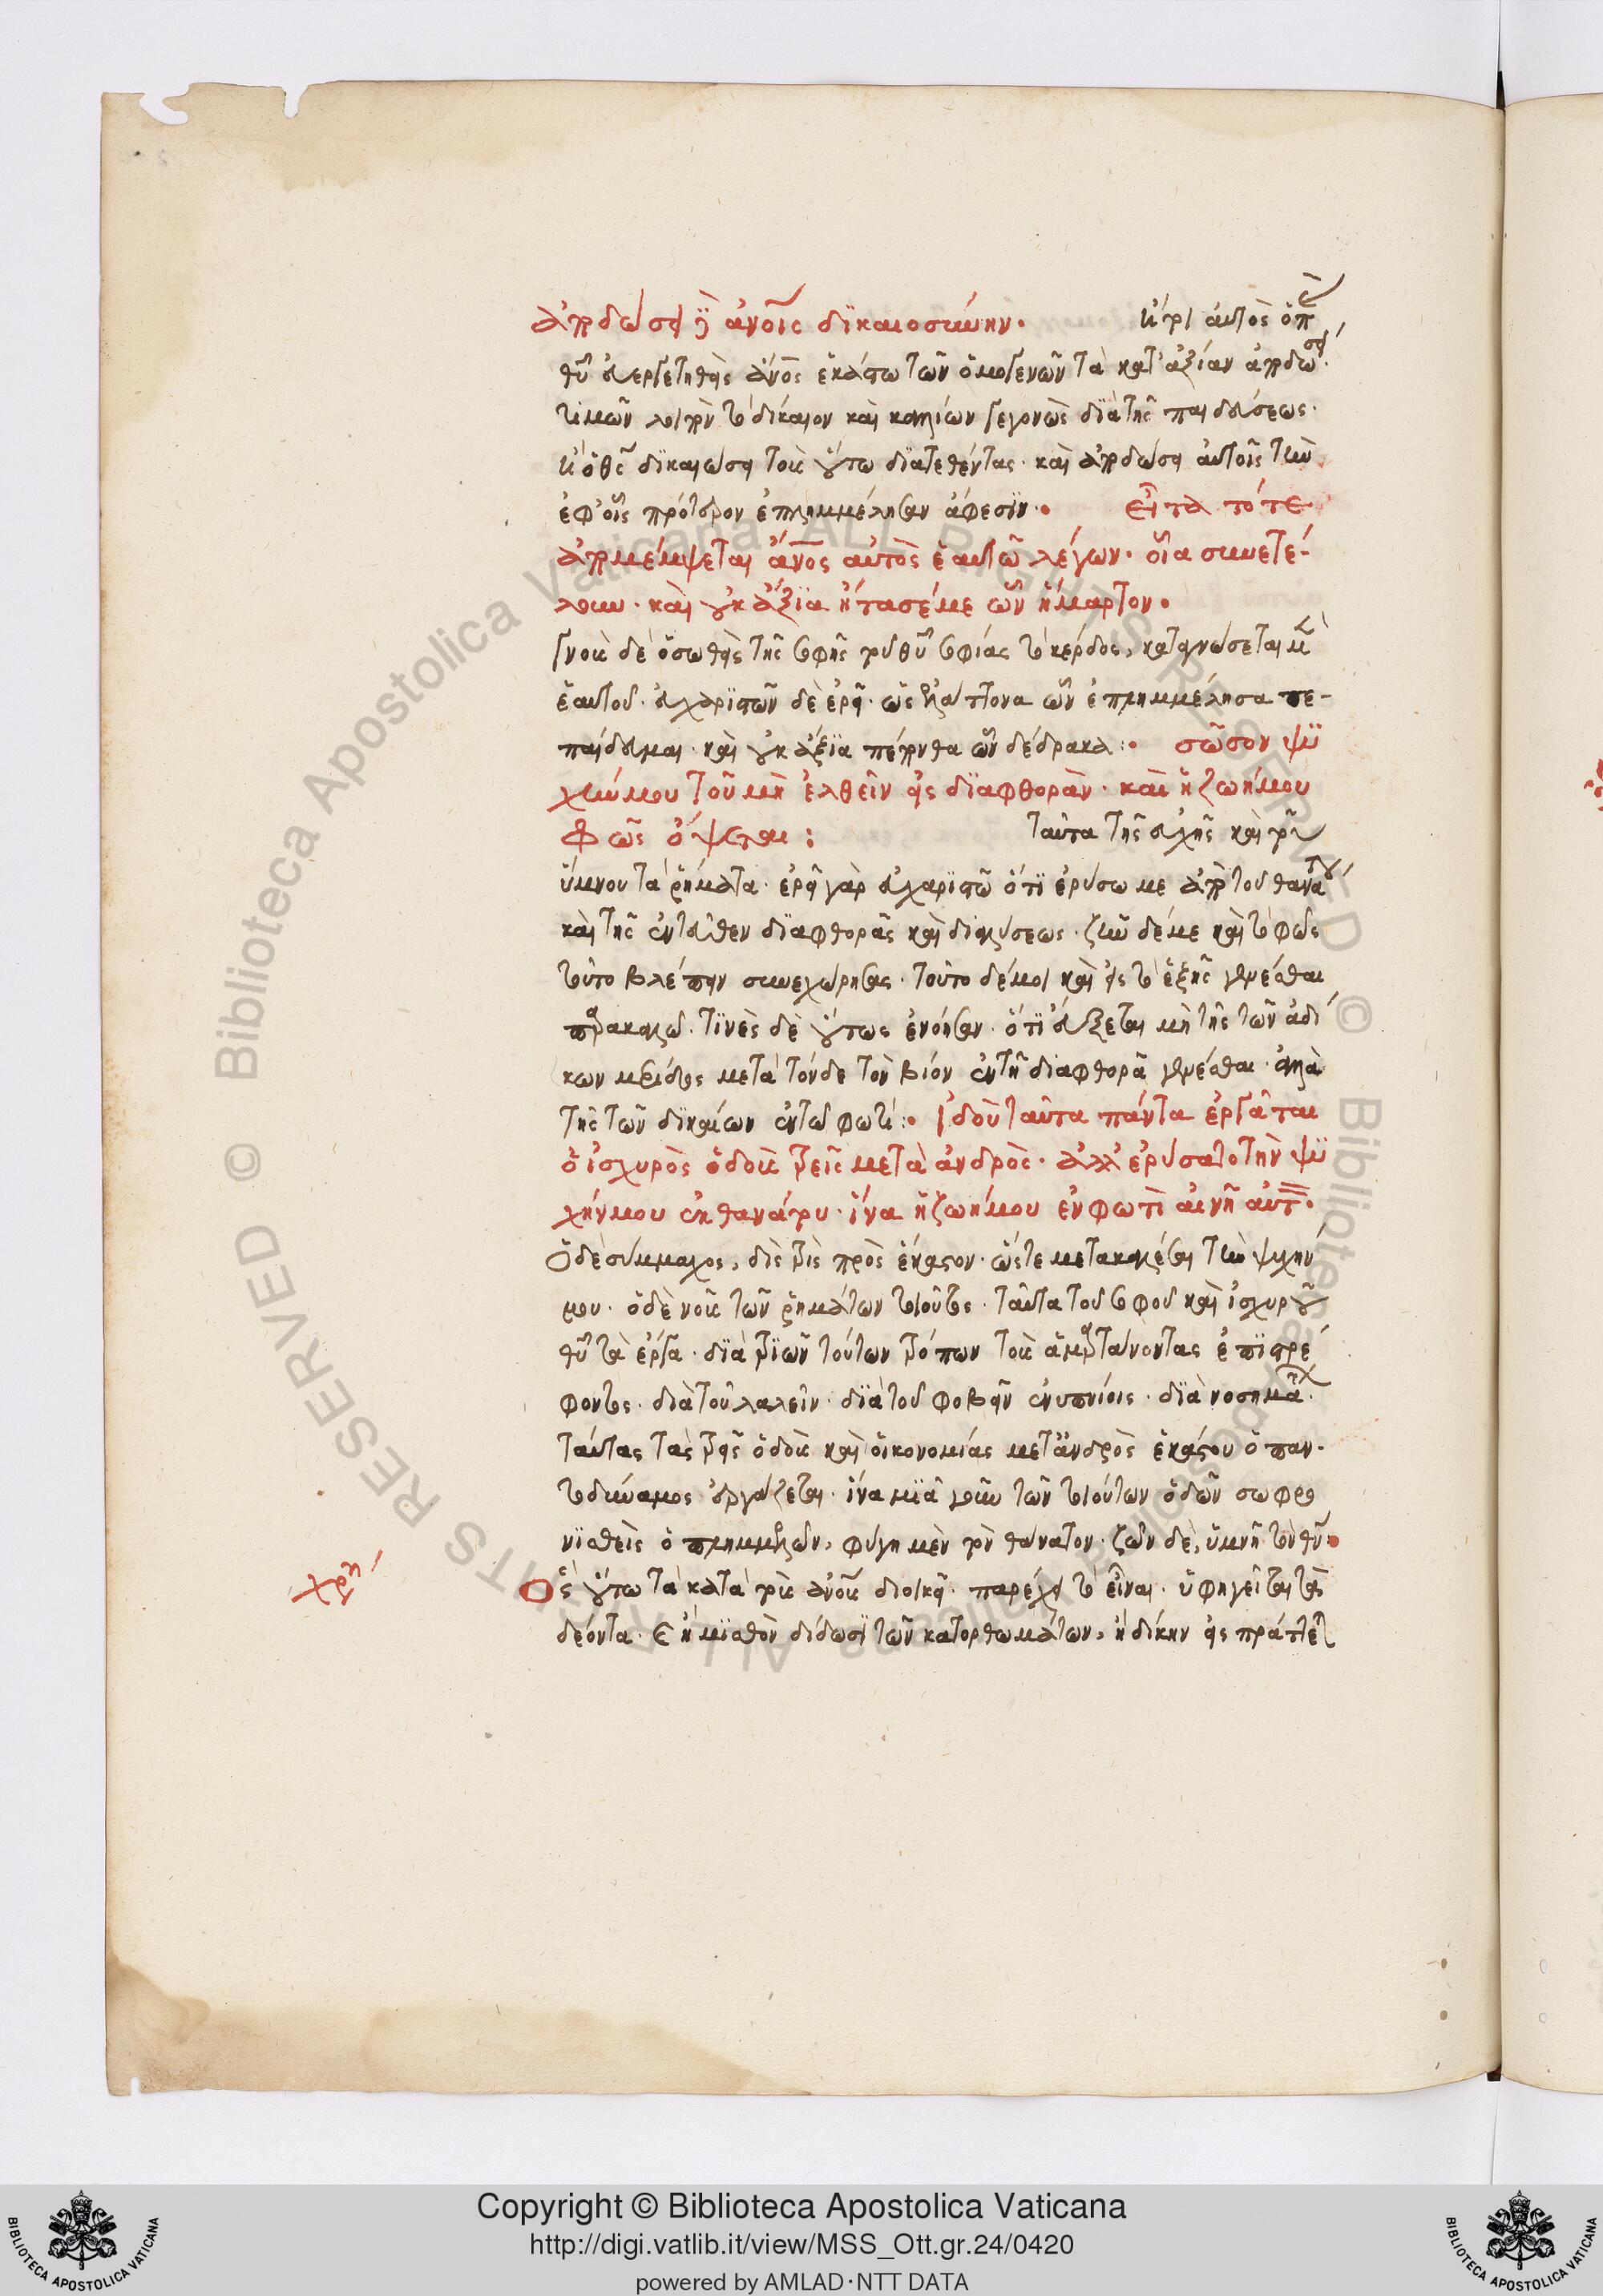 ἀποδώσει τοῖς ἀνοις δϊκαιοσύνην. ἤτοι αὐτὸς ὁ π
θῦ εὐεργετηθεὶς ἄνος ἑκάστω τῶν ὁμογενῶν τὰ κατ' ἀξίαν ἀποδώσει.
τιμῶν λοιπὸν τὸ δίκαιον καὶ καλλίων γεγονὼς δϊὰ τῆς παιδεύσεως.
ἢ ὁ θς δϊκαιώσει τοὺς οὕτω δϊατεθέντας. καὶ ἀποδώσει αὐτοῖς τὴν
ἐφ' οἷς πρότερον ἐπλημμέλησαν ἄφεσϊν. εἶτα τότε
ἀπομέμψεται ἄνος αὐτὸς ἑαυτῶ λέγων. οἷα συνετέ-
λουν. καὶ οὐκ ἄξϊα ἤτασέ με ὧν ἥμαρτον.
γνοὺς δὲ ὁ σωθεὶς τῆς σοφῆς τοῦ θῦ σοφίας τὸ κέρδος, καταγνώσεται μὲν
ἑαυτοῦ. εὐχαρϊστῶν δὲ ἐρεῖ. ὡς ἐλάττονα ὧν ἐπλημμέλησα πε-
παίδευμαι. καὶ οὐκ ἄξϊα πέπονθα ὧν δέδρακα:. σῶσον ψϋ
χήν μου τοῦ μὴ ἐλθεῖν εἰς δϊαφθοράν. καὶ ἡ ζωή μου
φῶς ὄψεται: ταῦτα τῆς εὐχῆς καὶ τοῦ
ὕμνου τὰ ῥήματα. ἐρεῖ γὰρ εὐχαρϊστῶ ὅτϊ ἐρύσω με ἀπὸ τοῦ θανάτου
καὶ τῆς ἐντεῦθεν δϊαφθορᾶς καὶ διαλύσεως. ζῆν δέ με καὶ τὸ φῶς
τοῦτο βλέπειν συνεχώρησας. τοῦτο δέ μοι καὶ εἰς τὸ ἑξῆς γενέσθαι
παρακαλῶ. τϊνὲς δὲ οὕτως ἐνόησαν. ὅτϊ εὔξεται μὴ τῆς τῶν ἀδί
κων μερίδος μετὰ τόνδε τὸν βίον ἐν τῆ διαφθορᾶ γενέσθαι. ἀλλὰ
τῆς τῶν δϊκαίων ἐν τῶ φωτί:. ἰδοὺ ταῦτα πάντα ἐργᾶται
ὁ ἰσχυρὸς ὁδοὺς τρεῖς μετὰ ἀνδρός. ἀλλ' ἐρύσατο τὴν ψϋ
χήν μου ἐκ θανάτου. ἵνα ἡ ζωή μου ἐν φωτὶ αἰνῆ αὐτ.
Ὁ δὲ σύμμαχος, δὶς τρὶς πρὸς ἕκαστον. ὥστε μετακαλέσαι τὴν ψυχήν
μου. ὁ δὲ νοῦς τῶν ῥημάτων τοιοῦτος. ταῦτα τοῦ σοφοῦ καὶ ἰσχυροῦ
θῦ τὰ ἔργα. δϊὰ τρϊῶν τούτων τρόπων τοὺς ἁμαρτάνοντας ἐπϊστρέ
φοντος. διὰ τοῦ λαλεῖν. δϊὰ τοῦ φοβεῖν ἐνυπνίοις. δϊὰ νοσημάτων.
ταύτας τὰς τρεῖς ὁδοὺς καὶ οἰκονομίας μετ' ἀνδρὸς ἑκάστου ὁ παν-
τοδύναμος ἐργάζεται. ἵνα μϊᾶ γοῦν τῶν τοιούτων ὁδῶν σωφρο
νϊσθεὶς ὁ πλημμελῶν, φύγη μὲν τὸν θάνατον. ζῶν δὲ, ὑμνῆ τὸν θν.
χρη
Ὃς οὕτω τὰ κατὰ τοὺς ἀνους διοικεῖ. παρέχει τὸ εἶναι. ὑφηγεῖται τὰ
δέοντα. ἢ μϊσθὸν δίδωσϊ τῶν κατορθωμάτων, ἢ δίκην εἰσπράττεται
Copyright © Biblioteca Apostolica Vaticana
http://digi.vatlib.it/view/MSS_Ott.gr.24/0420
powered by AMLAD·NTT DATA